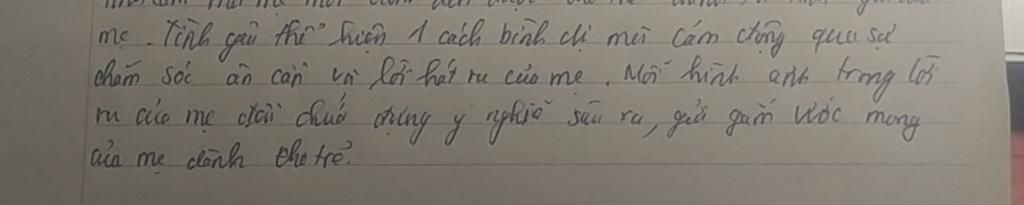 mẹ. Tình yêu thể hiện 1 cách bình dị mà cảm động qua sự
chăm sóc ân cần và lời hát ru của mẹ. Mỗi hình ảnh trong lời
ru của mẹ đều chứa đựng ý nghĩa sâu xa, gửi gắm ước mong
của mẹ dành cho trẻ.